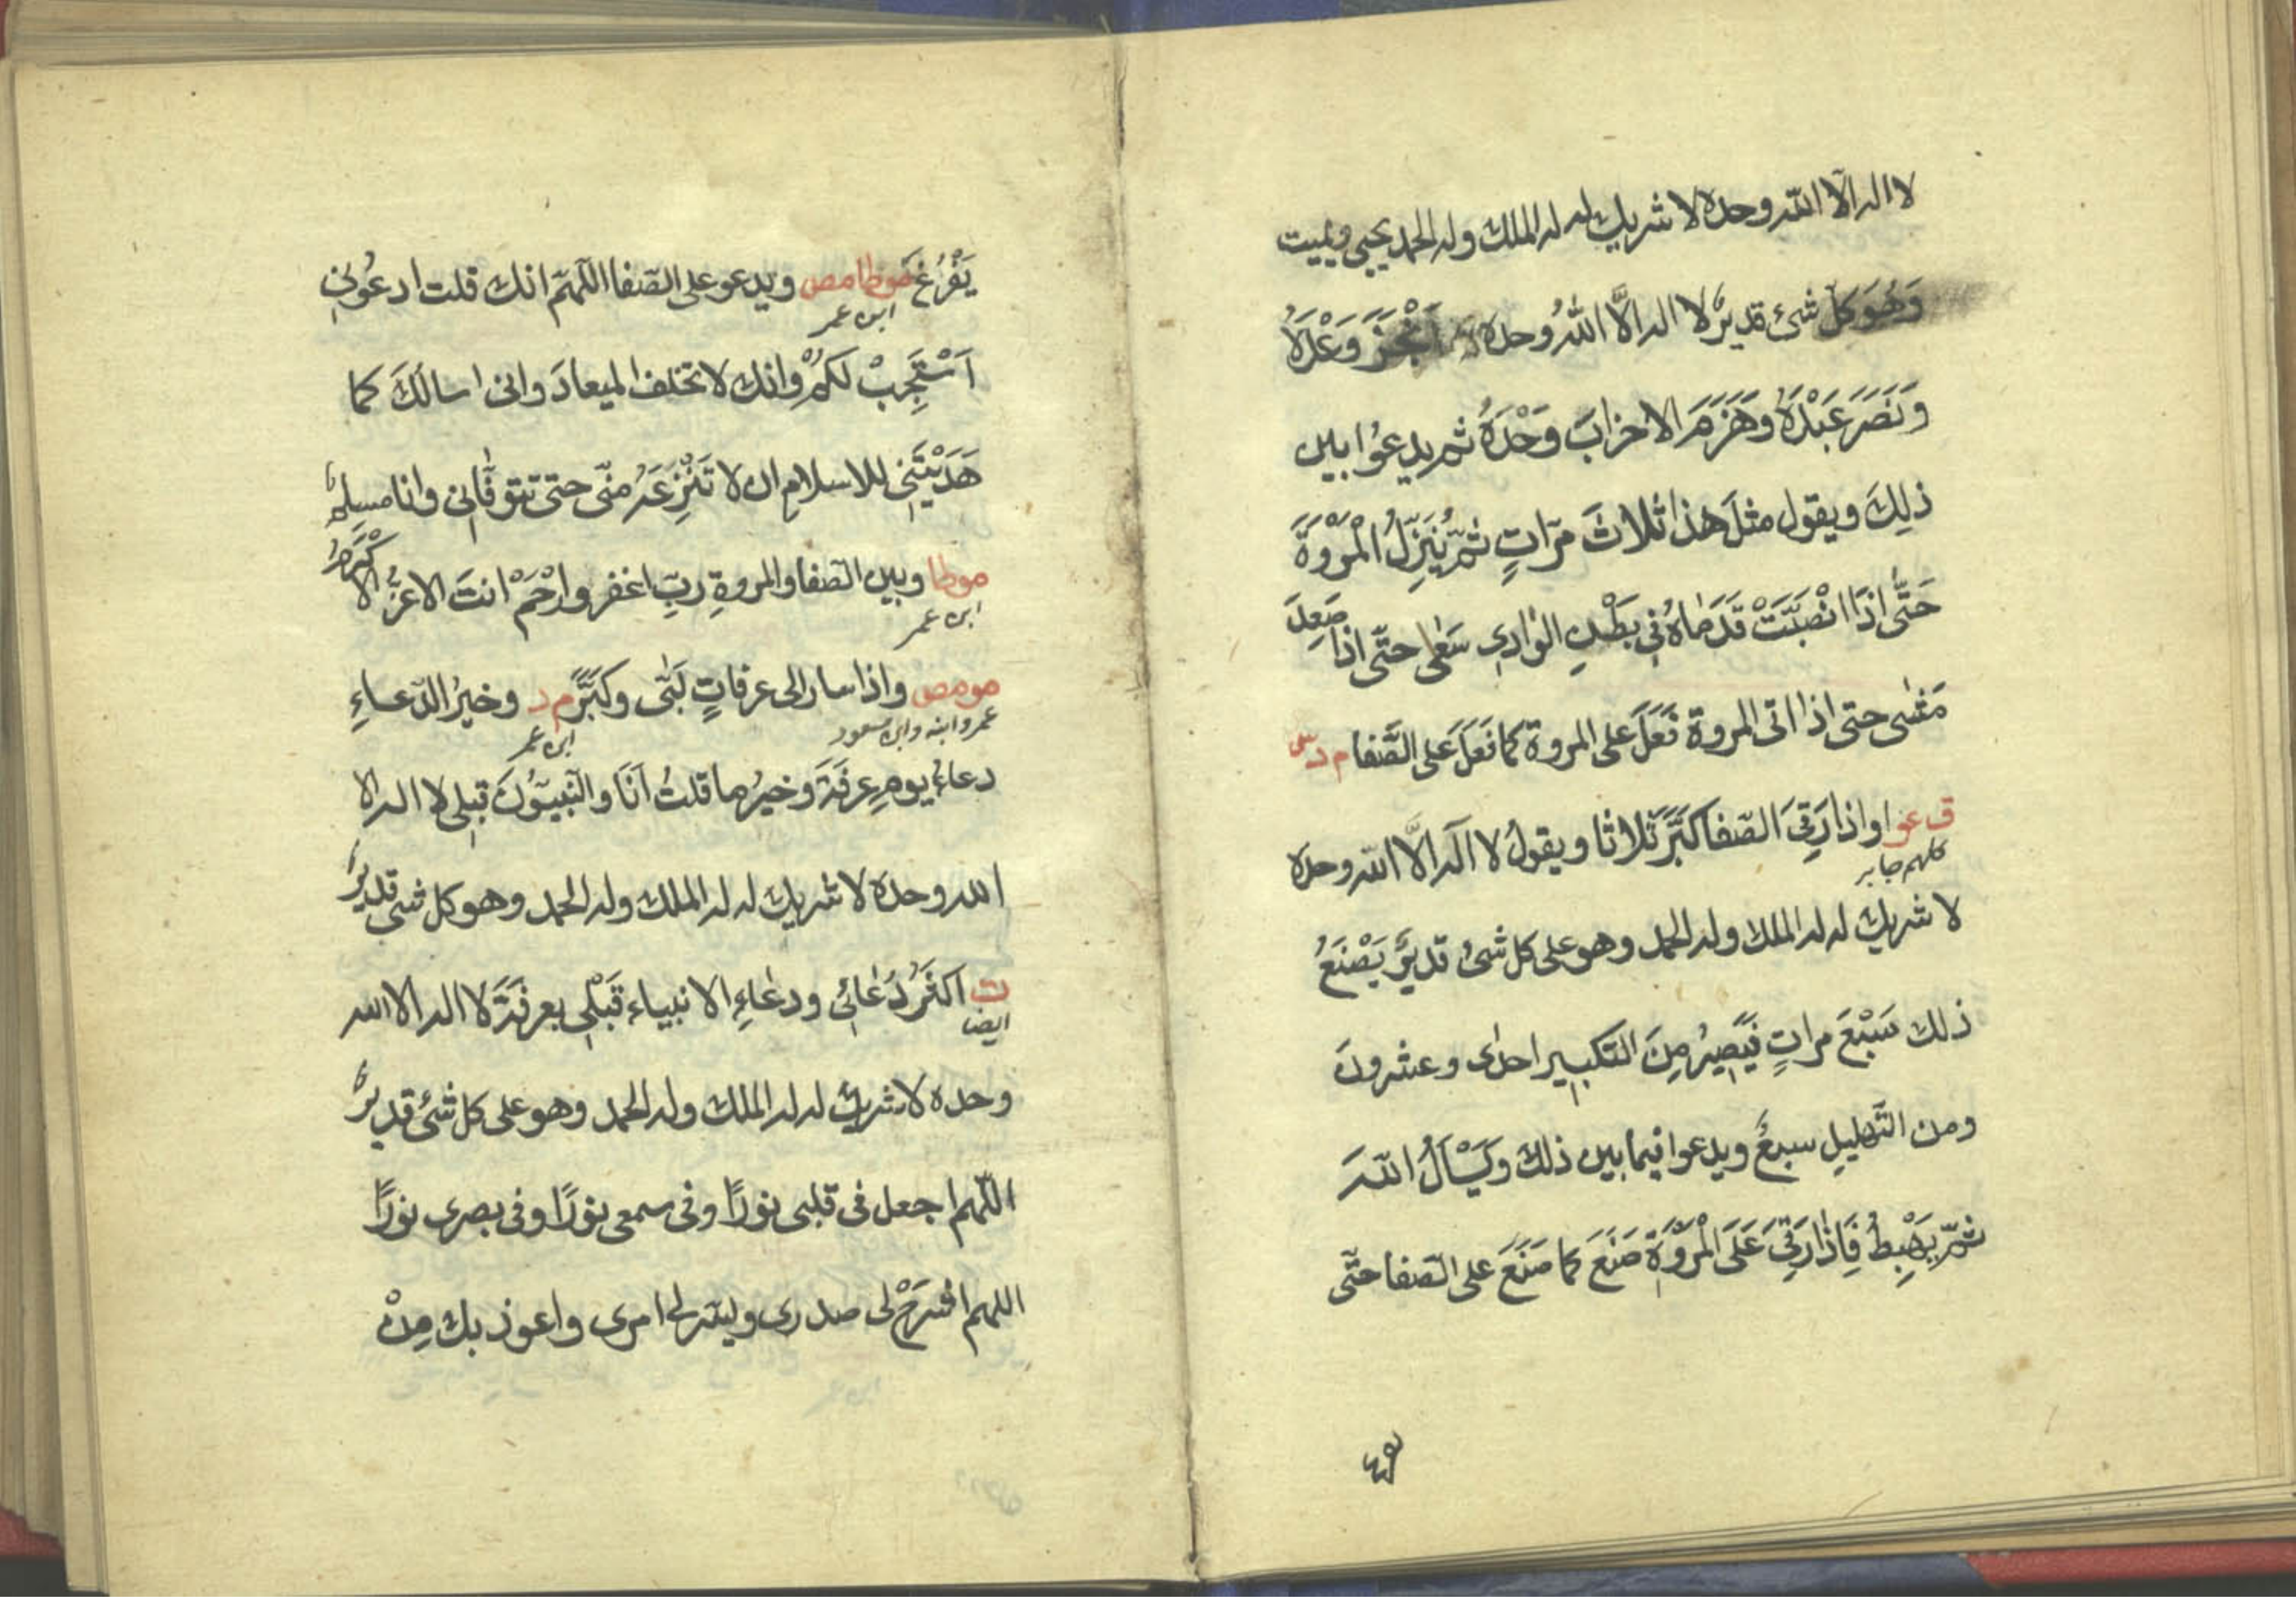 لا اله الّا اللّه وحده لا شريك له له الملك وله الحمد يحيى ويميت
وَهُوَ كل شئ قديرٌ لا اله الَّا اللّٰهُ وحده اَنْجَزَ وَعْدَهُ
وَنَصَرَ عَبْدَهُ وَهَزَمَ الاحزابَ وَحْدَهُ ثم يدعوا بين
ذلِكَ ويقول مثلَ هذا ثلاثَ مرّاتٍ ثمّ يَنزِلُ الْمَرْوَةَ
حَتَّى اِذَا انْصَبَّتْ قَدَمَاهُ فِى بَطْنِ الوادِى سَعٰى حتّى اذا صَعِدَ
مَشٰى حتى اذا اتى المروة فَعَلَ على المروة كما فَعَلَ على الصَّفا م د س
ق عو واذا رَقِىَ الصّفا كَبَّرَ ثلاثا ويقولُ لا اله الَّا اللّه وحده
كلهم جابر
لا شريك له له الملك وله الحمد وهو على كل شئ قديرٌ يَصْنَعُ
ذلك سَبْعَ مراتٍ فَيَصِيرُ مِنَ التكبير احدٰى وعشرونَ
ومن التّهليلِ سبعٌ ويدعوا فيما بين ذلك وَيَسْاَلُ اللّهَ
ثمّ يَهْبِطُ فَاِذَا رَقِىَ عَلَى الْمَرْوَةِ صَنَعَ كما صَنَعَ على الصّفا حتّى
يَفْرُغَ موطا مص ويدعو على الصّفا اللّهمّ انك قلت ادعُونِى
ابن عمر
اَسْتَجِبْ لَكُمْ وانك لا تخلف الميعادَ وانى اسالكَ كما
هَدَيْتَنِى للاسلامِ ان لا تَنْزِعَهُ منّى حتى تتوفّانِى وانا مسلِمٌ
موطا وبين الصّفا والمروةِ ربِّ اغفر وارْحَمْ انتَ الاعزُّ الاكْرَمُ
ابن عمر
مو مص واذا سار الى عرفاتٍ لَبّٰى وكبَّرَ م د وخيرُ الدّعاءِ
عمرو ابنه وابن مسعود ابن عمر
دعاءُ يومِ عرفَةَ وخيرُ ما قلتُ اَنَا والنّبيّونَ قبلى لا اله الا
اللّه وحده لا شريك له له الملك وله الحمد وهو كل شئ قديرٌ
ت اكثَرُ دُعائِى ودعٰاءِ الانبياء قَبْلِى بعرفَةَ لا اله الا الله
ايضا
وحده لا شريك له له الملك وله الحمد وهو على كل شئ قديرٌ
اللّهم اجعل فى قلبى نورًا وفى سمعى نورًا وفى بصرى نورًا
اللهم اشرَحْ لى صدرى ويسّر لى امرى واعوذ بك مِنْ